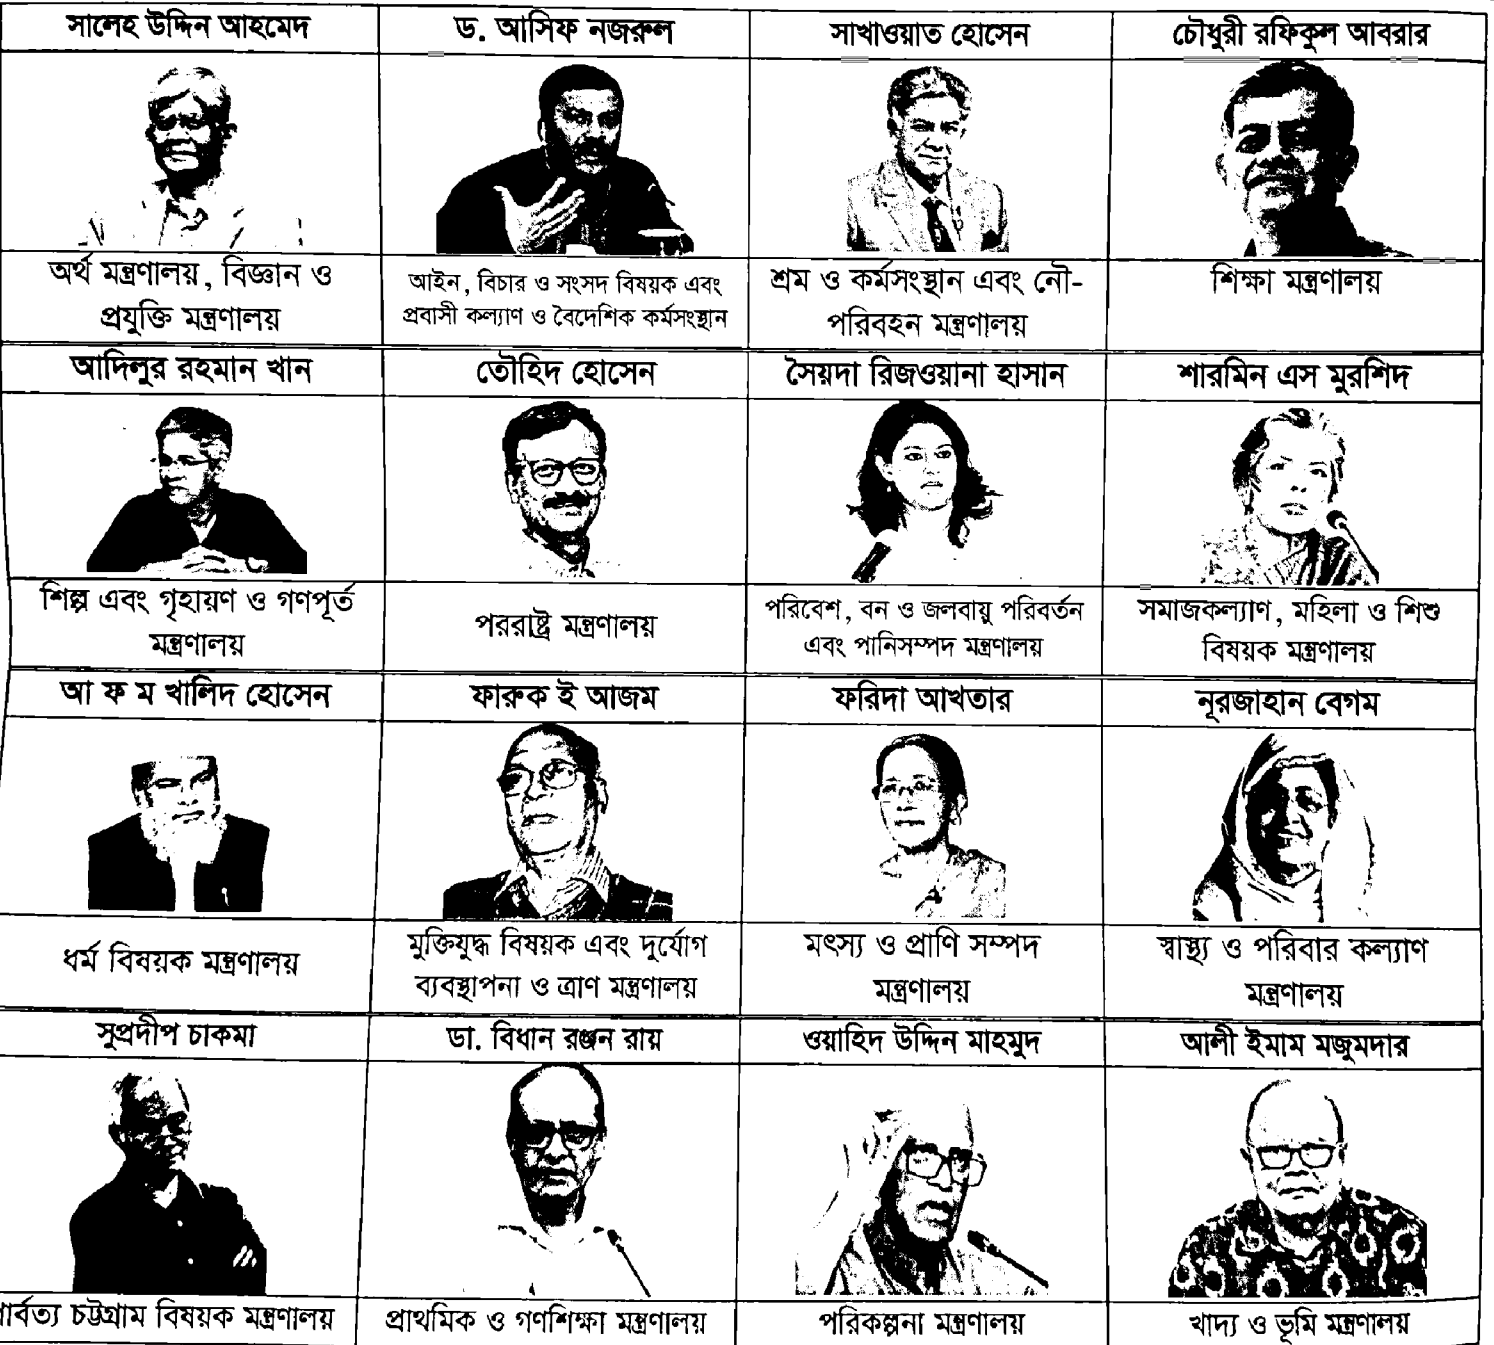 সালেহ উদ্দিন আহমেদ
ড. আসিফ নজরুল
সাখাওয়াত হোসেন
চৌধুরী রফিকুল আবরার
অর্থ মন্ত্রণালয়, বিজ্ঞান ও
প্রযুক্তি মন্ত্রণালয়
আইন, বিচার ও সংসদ বিষয়ক এবং
প্রবাসী কল্যাণ ও বৈদেশিক কর্মসংস্থান
শ্রম ও কর্মসংস্থান এবং নৌ-
পরিবহন মন্ত্রণালয়
শিক্ষা মন্ত্রণালয়
আদিলুর রহমান খান
তৌহিদ হোসেন
সৈয়দা রিজওয়ানা হাসান
শারমিন এস মুরশিদ
শিল্প এবং গৃহায়ণ ও গণপূর্ত
মন্ত্রণালয়
পররাষ্ট্র মন্ত্রণালয়
পরিবেশ, বন ও জলবায়ু পরিবর্তন
এবং পানিসম্পদ মন্ত্রণালয়
সমাজকল্যাণ, মহিলা ও শিশু
বিষয়ক মন্ত্রণালয়
আ ফ ম খালিদ হোসেন
ফারুক ই আজম
ফরিদা আখতার
নূরজাহান বেগম
ধর্ম বিষয়ক মন্ত্রণালয়
মুক্তিযুদ্ধ বিষয়ক এবং দুর্যোগ
ব্যবস্থাপনা ও ত্রাণ মন্ত্রণালয়
মৎস্য ও প্রাণি সম্পদ
মন্ত্রণালয়
স্বাস্থ্য ও পরিবার কল্যাণ
মন্ত্রণালয়
সুপ্রদীপ চাকমা
ডা. বিধান রঞ্জন রায়
ওয়াহিদ উদ্দিন মাহমুদ
আলী ইমাম মজুমদার
পার্বত্য চট্টগ্রাম বিষয়ক মন্ত্রণালয়
প্রাথমিক ও গণশিক্ষা মন্ত্রণালয়
পরিকল্পনা মন্ত্রণালয়
খাদ্য ও ভূমি মন্ত্রণালয়